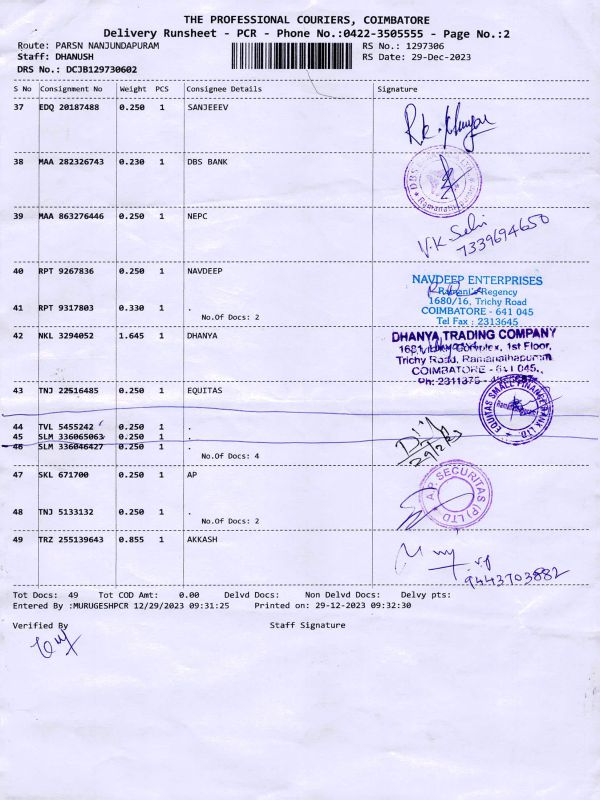 THE PROFESSIONAL COURIERS, COIMBATORE
Delivery Runsheet - PCR - Phone No.:0422-3505555 - Page No.:2
Route: PARSN NANJUNDAPURAM RS No.: 1297306
Staff: DHANUSH RS Date: 29-Dec-2023
DRS No.: DCJB129730602
S No Consignment No Weight PCS Consignee Details Signature
37 EDQ 20187488 0.250 1 SANJEEEV
38 MAA 282326743 0.230 1 DBS BANK
39 MAA 863276446 0.250 1 NEPC
V.K Selvi
7339694650
40 RPT 9267836 0.250 1 NAVDEEP
NAVDEEP ENTERPRISES
Ramani's Regency
1680/16, Trichy Road
COIMBATORE - 641 045
Tel Fax : 2313645
41 RPT 9317803 0.330 1 .
No.Of Docs: 2
42 NKL 3294052 1.645 1 DHANYA
DHANYA TRADING COMPANY
Complex, 1st Floor,
Trichy Road, Ramanathapuram
COIMBATORE - 641 045.
Ph: 2311375
43 TNJ 22516485 0.250 1 EQUITAS
EQUITAS SMALL FINANCE BANK LTD
44 TVL 5455242 0.250 1 .
45 SLM 336065063 0.250 1 .
46 SLM 336046427 0.250 1 .
No.Of Docs: 4
47 SKL 671700 0.250 1 AP
A.P. SECURITAS (P) LTD
48 TNJ 5133132 0.250 1 .
No.Of Docs: 2
49 TRZ 255139643 0.855 1 AKKASH
9443703882
Tot Docs: 49 Tot COD Amt: 0.00 Delvd Docs: Non Delvd Docs: Delvy pts:
Entered By :MURUGESHPCR 12/29/2023 09:31:25 Printed on: 29-12-2023 09:32:30
Verified By Staff Signature